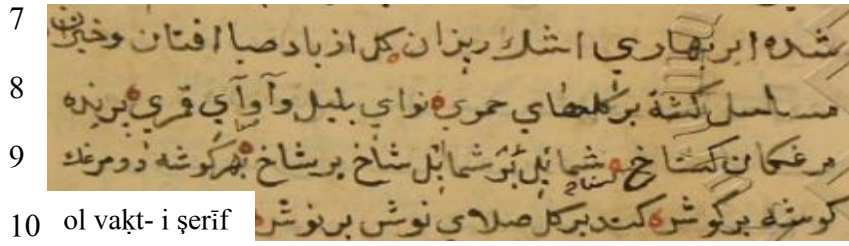 7 شده ابر بهاري اشك ريزان كل از باد صبا افتان و خيزان
8 مسلسل كشته بر كلهاي حموي نواي بلبل و آواي قمري پرنده
9 مرغكان كستاخ شمايل بر شمايل شاخ بر شاخ بهر كوشه دو مرغك
10 ol vaḳt- i şerīf كوشه بر كوش كند بر كل صلاي نوش بر نوش